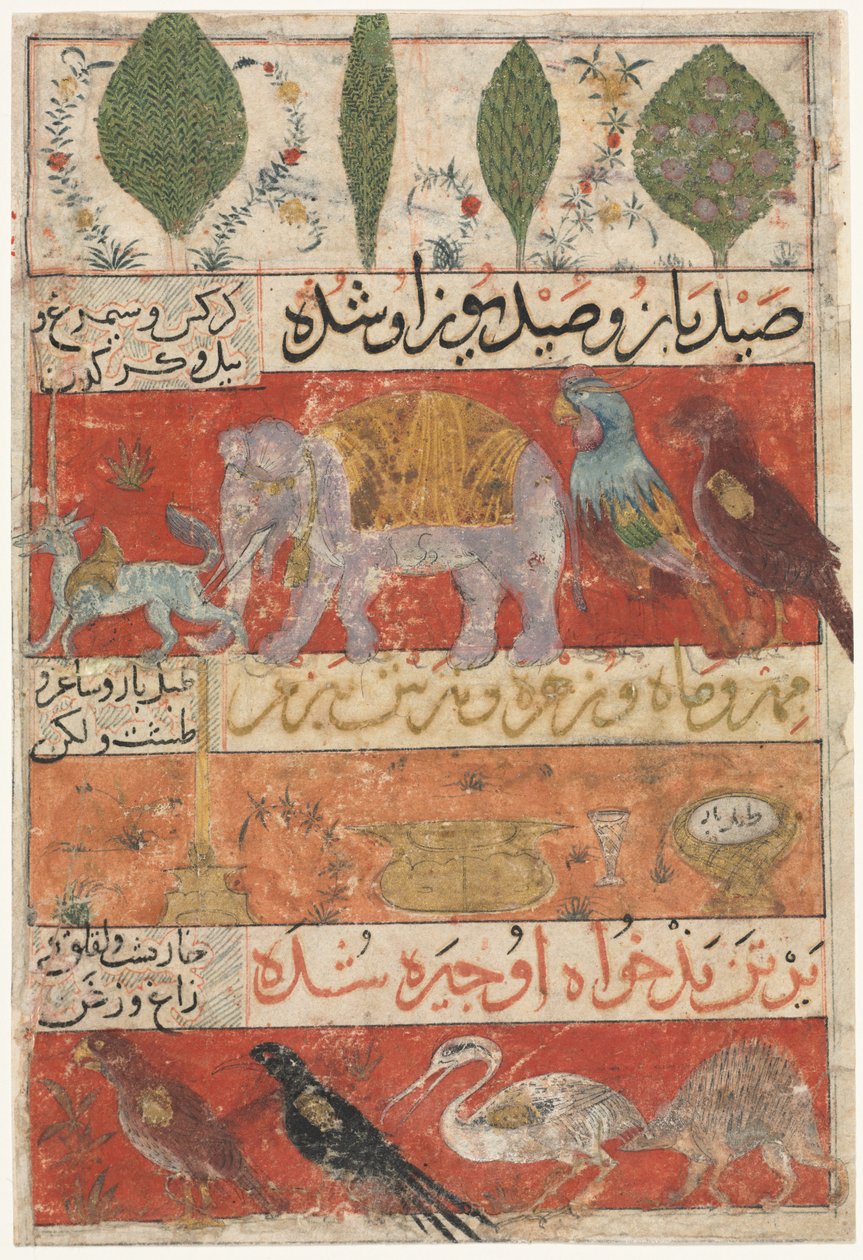 صَیْد باز و صَیْد یوز او شُده
کرکس و سیمرغ و
پیل و کرکدن
مهر و ماه و زهره و
طبل باز و ساغر و
طشت و لکن
طبل باز
بَر تن بَدْخواه او چیره شده
خارپشت و لقلق و
زاغ و زغن